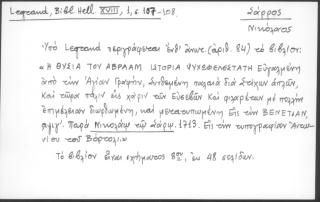 Legrand, Bibl. Hell. XVIII, 1, σ. 107-108.
Σάρρος
Νικόλαος
Ὑπὸ Legrand περιγράφεται ὑπ' ἀριθ. (ἀριθ. 84) τὸ βιβλίον:
« Η ΘΥΣΙΑ ΤΟΥ ΑΒΡΑΑΜ ΙΣΤΟΡΙΑ ΨΥΧΩΦΕΛΕΣΤΑΤΗ Εὐγαλμένη
ἀπὸ τὴν Ἁγίαν Γραφὴν, Συνθεμένη παλαιὰ διὰ Στίχων ἁπλῶν,
Καὶ τῶρα πάλιν εἰς χάριν τῶν Εὐσεβῶν Καὶ φιλαρέτων μὲ πολλὴν
ἐπιμέλειαν διωρθωμένη, καὶ μετατυπωμένη Εἰς τὴν ΒΕΝΕΤΙΑΝ,
αψιγ'. Παρὰ Νικολάῳ τῷ Σάρῳ. 1713. Εἰς τὴν τυπογραφίαν Ἀντω-
νίου τοῦ Βόρτολι»
Τὸ βιβλίον εἶναι σχήματος 8ου, ἐκ 48 σελίδων.